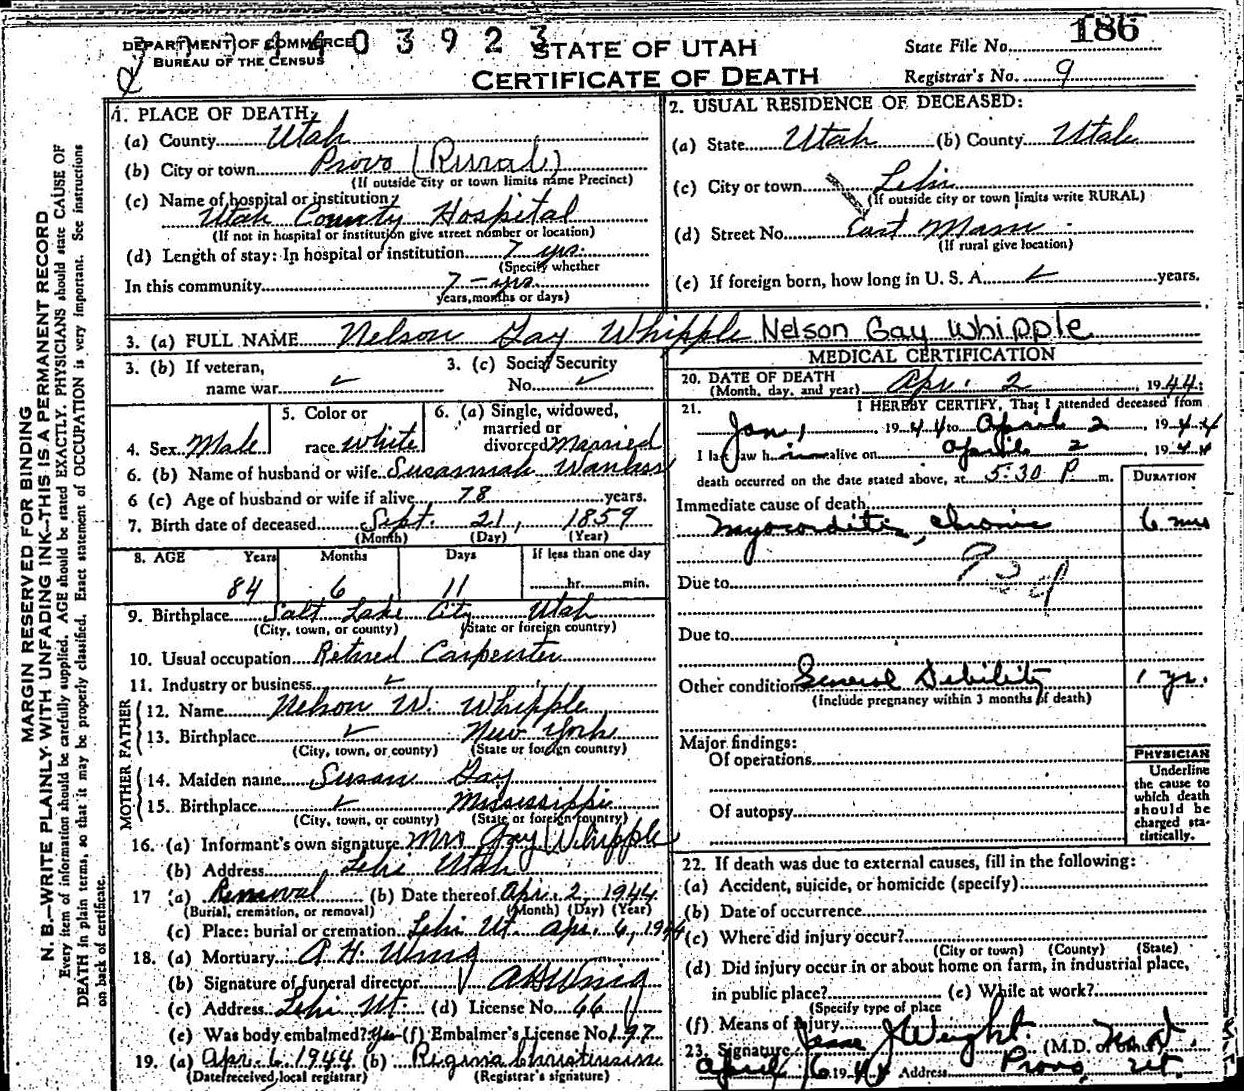 DEPARTMENT OF COMMERCE
BUREAU OF THE CENSUS
403923
STATE OF UTAH
CERTIFICATE OF DEATH
State File No. 186
Registrar's No. 9
MARGIN RESERVED FOR BINDING
N. B.—WRITE PLAINLY WITH UNFADING INK—THIS IS A PERMANENT RECORD
Every item of information should be carefully supplied. AGE should be stated EXACTLY. PHYSICIANS should state CAUSE OF
DEATH in plain terms, so that it may be properly classified. Exact statement of OCCUPATION is very important. See instructions
on back of certificate.
1. PLACE OF DEATH:
(a) County Utah
(b) City or town Provo (Rural)
(If outside city or town limits name Precinct)
(c) Name of hospital or institution:
Utah County Hospital
(If not in hospital or institution give street number or location)
(d) Length of stay: In hospital or institution 7 yrs.
(Specify whether
In this community 7-yrs.
years, months or days)
2. USUAL RESIDENCE OF DECEASED:
(a) State Utah (b) County Utah
(c) City or town Lehi
(If outside city or town limits write RURAL)
(d) Street No. East Main
(If rural give location)
(e) If foreign born, how long in U. S. A. years.
3. (a) FULL NAME Nelson Gay Whipple Nelson Gay Whipple
3. (b) If veteran,
name war
3. (c) Social Security
No.
4. Sex Male
5. Color or
race white
6. (a) Single, widowed,
married or
divorced Married
6. (b) Name of husband or wife Susannah Wanlass
6 (c) Age of husband or wife if alive 78 years.
7. Birth date of deceased Sept. 21, 1859
(Month) (Day) (Year)
8. AGE Years Months Days If less than one day
84 6 11 hr. min.
9. Birthplace Salt Lake City Utah
(City, town, or county) (State or foreign country)
10. Usual occupation Retired Carpenter
11. Industry or business
FATHER
12. Name Nelson W. Whipple
13. Birthplace New York
(City, town, or county) (State or foreign country)
MOTHER
14. Maiden name Susan Gay
15. Birthplace Mississippi
(City, town, or county) (State or foreign country)
16. (a) Informant's own signature Mrs Gay Whipple
(b) Address Lehi Utah
17 (a) Removal (b) Date thereof Apr. 2, 1944
(Burial, cremation, or removal) (Month) (Day) (Year)
(c) Place: burial or cremation Lehi Ut. Apr. 6, 1944
18. (a) Mortuary A. H. Wing
(b) Signature of funeral director A H Wing
(c) Address Lehi Ut. (d) License No. 66
(e) Was body embalmed? Yes (f) Embalmer's License No. 197
19. (a) Apr. 6. 1944 (b) Regina Christensen
(Date received local registrar) (Registrar's signature)
MEDICAL CERTIFICATION
20. DATE OF DEATH
(Month, day, and year) Apr. 2, 1944
21. I HEREBY CERTIFY, That I attended deceased from
Jan 1, 1944 to April 2, 1944
I last saw him alive on April 2 1944
death occurred on the date stated above, at 5:30 P. m.
DURATION
Immediate cause of death
myocarditis, chronic 6 mos
Due to
Due to
Other conditions General Debility 1 yr.
(Include pregnancy within 3 months of death)
Major findings:
Of operations
Of autopsy
PHYSICIAN
Underline
the cause to
which death
should be
charged sta-
tistically.
22. If death was due to external causes, fill in the following:
(a) Accident, suicide, or homicide (specify)
(b) Date of occurrence
(c) Where did injury occur?
(City or town) (County) (State)
(d) Did injury occur in or about home on farm, in industrial place,
in public place? (e) While at work?
(Specify type of place
(f) Means of injury
23. Signature J Weight (M.D. or M.D.
April 6 1944 Address Provo, Ut.